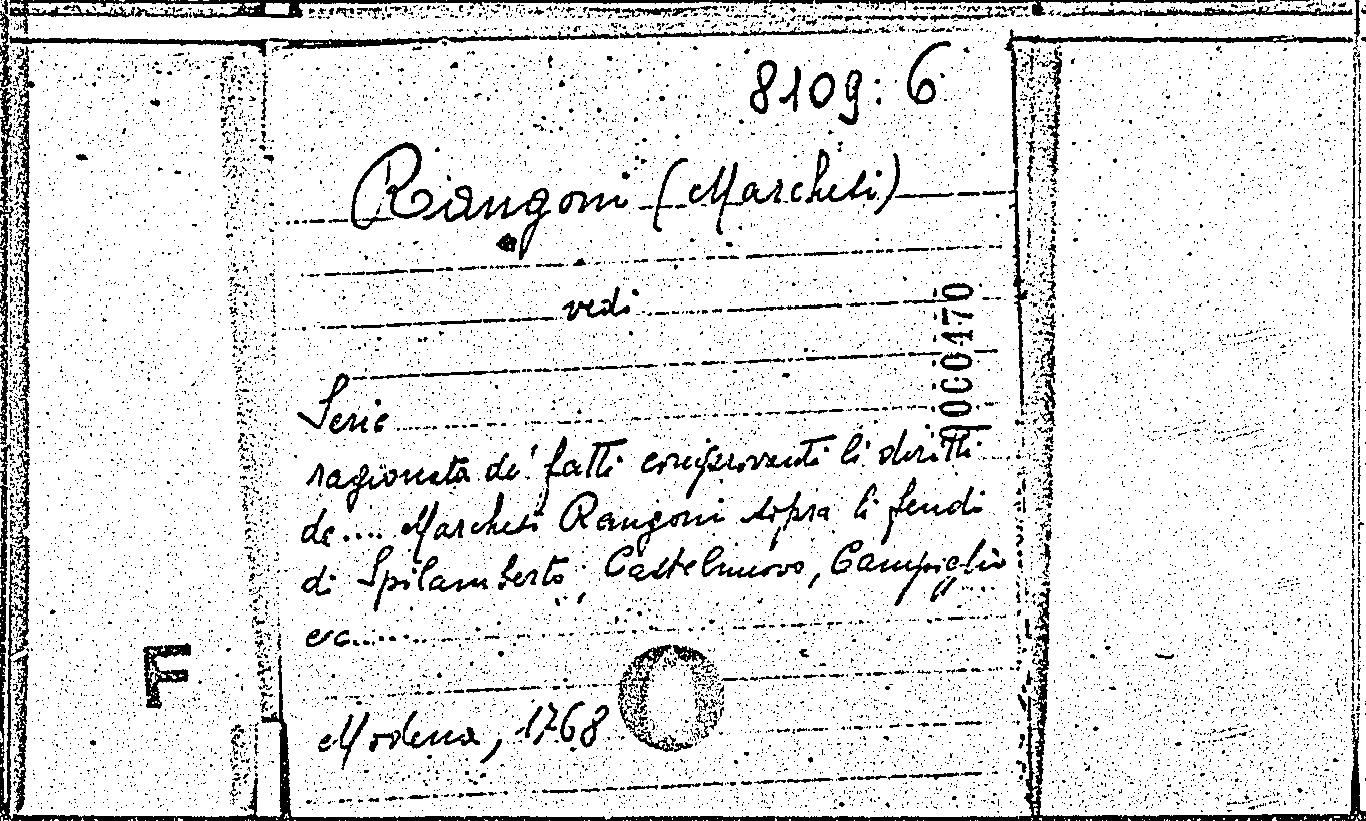 8109:6
Rangoni (Marchesi)
vedi
000470
Serie
ragionata de' fatti comprovanti li diritti
de.... Marchesi Rangoni sopra li feudi
di Spilamberto, Castelnuovo, Campiglio
ecc.....
F
Modena, 1768